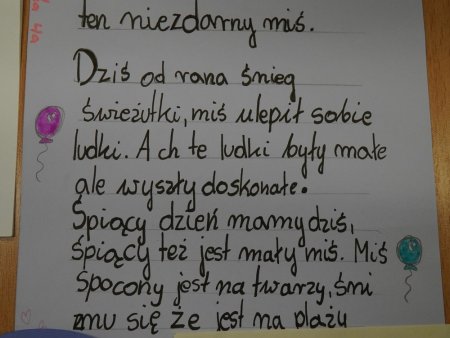 ten niezdarny miś.
Dziś od rana śnieg
świeżutki, miś ulepił sobie
ludki. Ach te ludki były małe
ale wyszły doskonałe.
Śpiący dzień mamy dziś,
śpiący też jest mały miś. Miś
spocony jest na twarzy, śni
mu się że jest na plaży